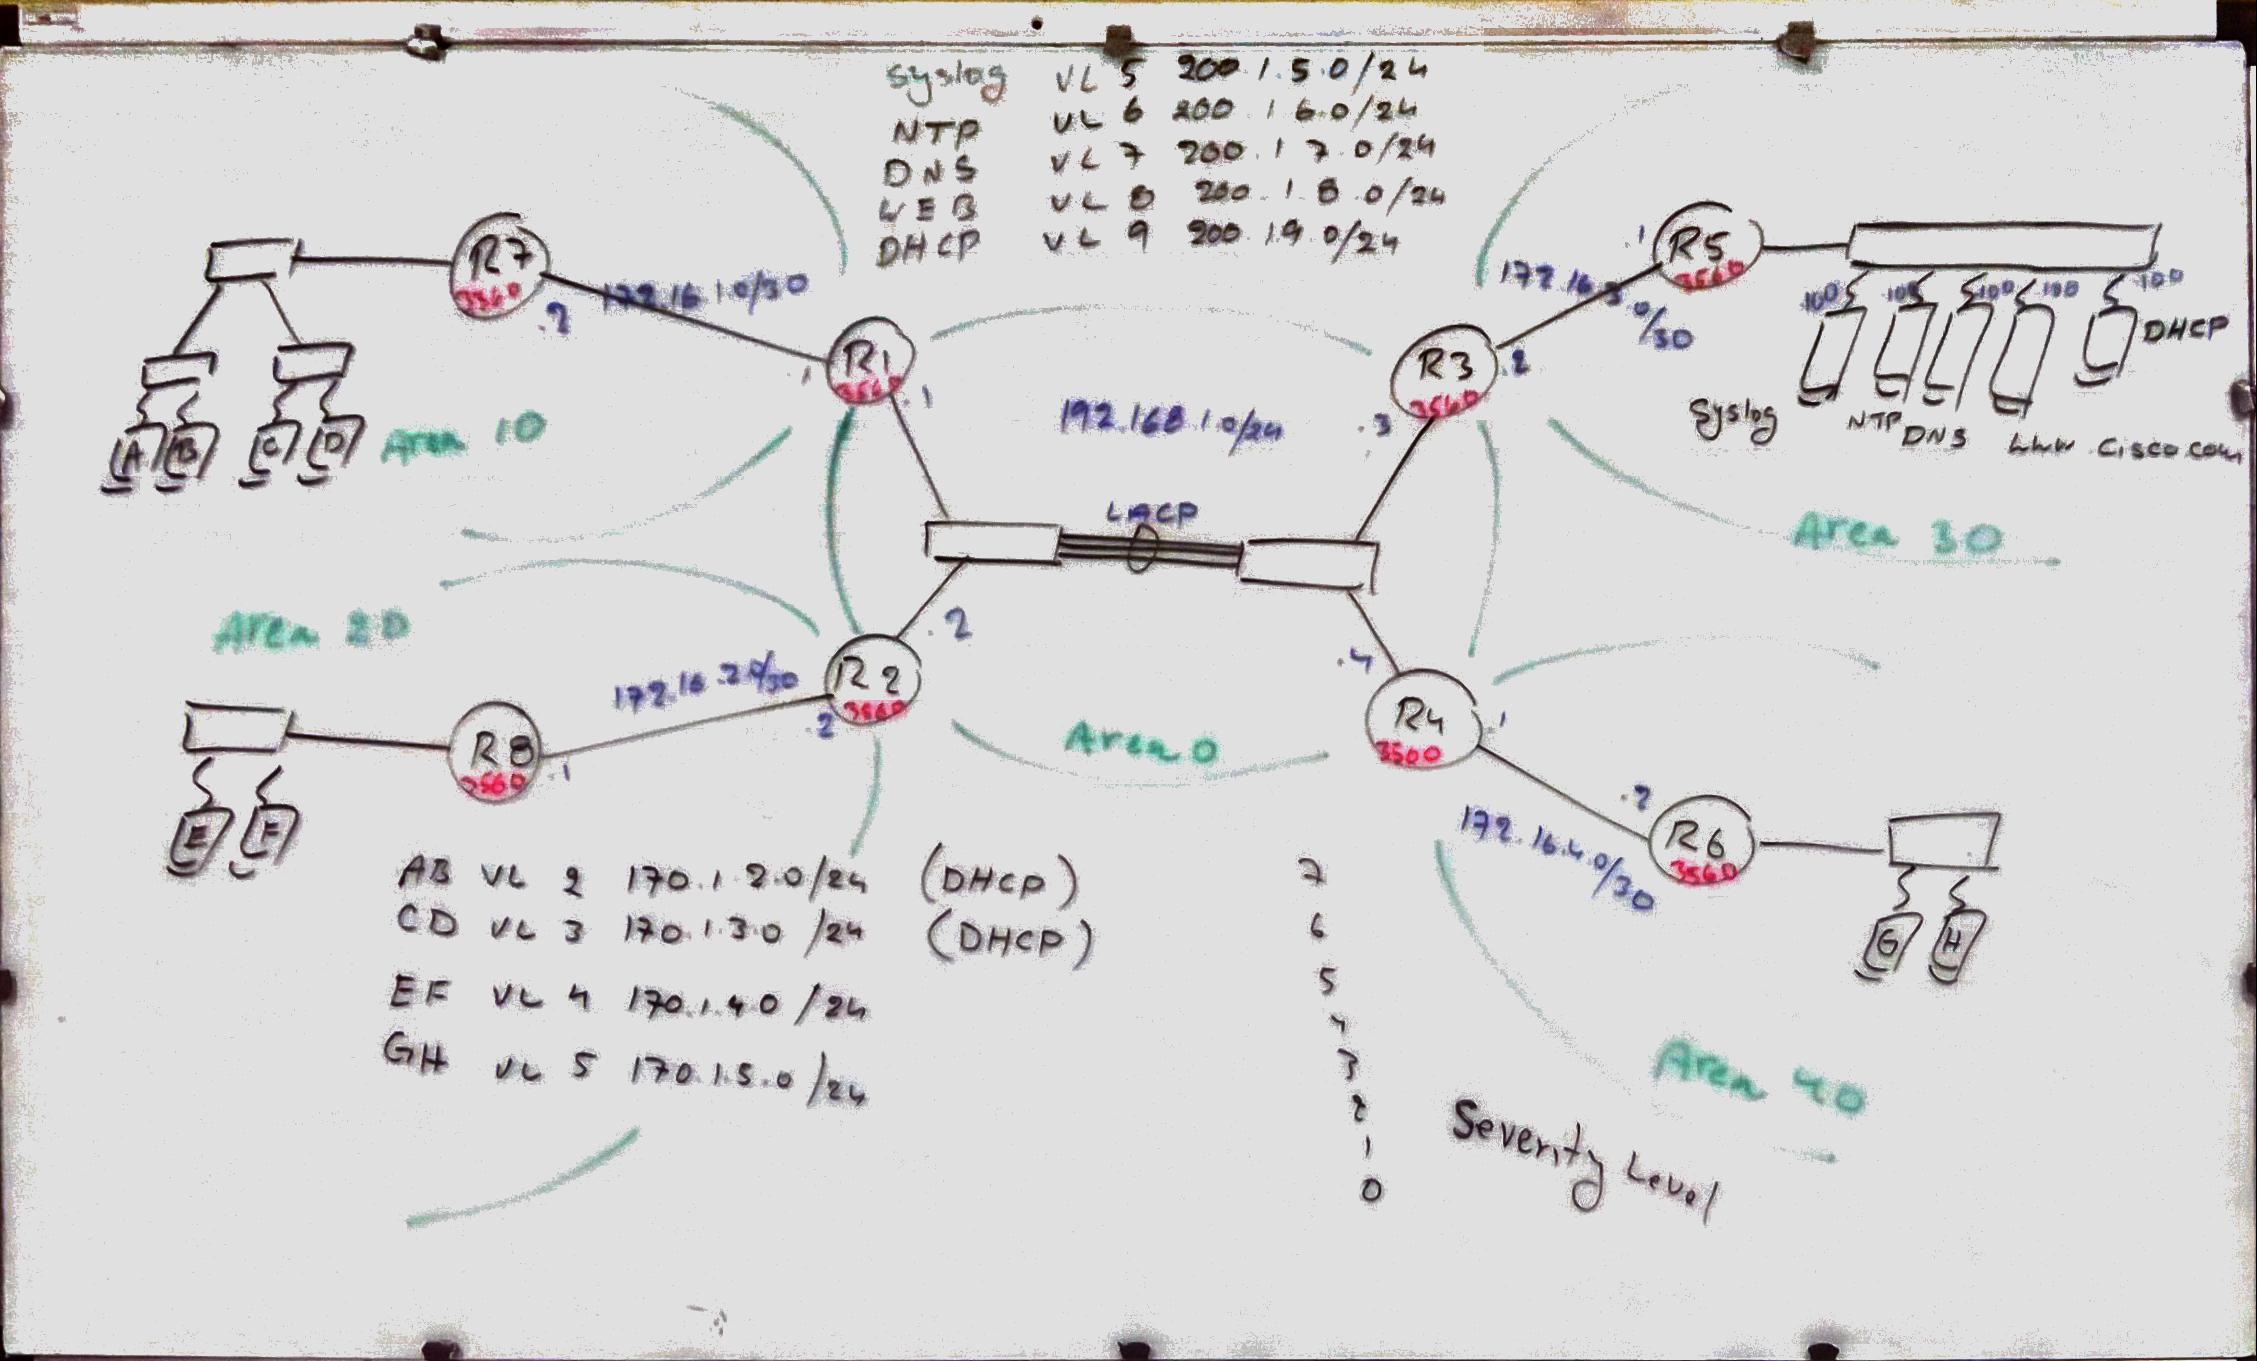 Syslog VL 5 200.1.5.0/24
NTP VL 6 200.1 6.0/24
DNS VL 7 200.1 7.0/24
WEB VL 8 200.1.8.0/24
DHCP VL 9 200.1 9.0/24
R7
3560
.2
172.16.1.0/30
R1
3560
.1
.1
A
B
C
D
Area 10
192.168.1.0/24
LACP
R3
3560
.3
.2
172.16.3.0/30
.1
R5
3560
100
100
100
100
100
Syslog
NTP
DNS
www.Cisco.com
DHCP
Area 30
Area 20
R8
3560
.1
172.16.2.0/30
.2
R2
3560
.2
E
F
Area 0
.4
R4
3500
.1
172.16.4.0/30
.2
R6
3560
G
H
Area 40
AB VL 2 170.1.2.0/24 (DHCP)
CD VL 3 170.1.3.0/24 (DHCP)
EF VL 4 170.1.4.0/24
GH VL 5 170.1.5.0/24
7
6
5
4
3
2
1
0
Severity Level